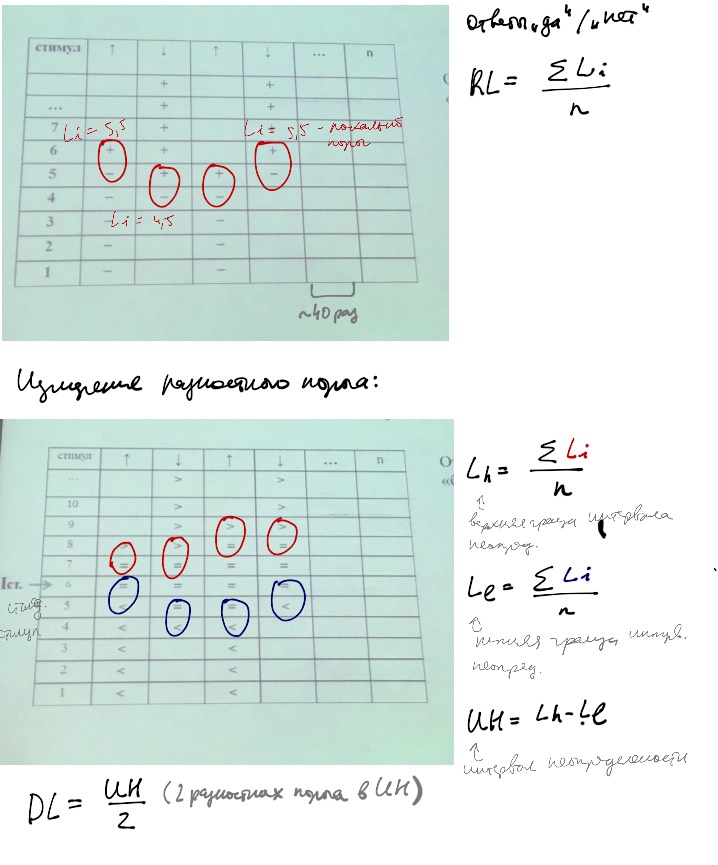 ответы „да“/„нет“
RL = ΣLi / n
стимул ↑ ↓ ↑ ↓ ... n
+ +
... + +
7 + Li = 5,5 Li = 5,5 - локальный порог
6 + + +
5 - + + -
4 - - -
3 - Li = 4,5 -
2 - -
1 - -
~40 раз
Измерение разностного порога:
стимул ↑ ↓ ↑ ↓ ... n
... > >
10 > >
9 > > >
8 > = =
7 = = = =
Iст. → 6 = = = =
5 < = = <
4 < < <
3 < <
2 < <
1 < <
станд.
стимул
Lh = ΣLi / n
↑
верхняя граница интервала
неопред.
Le = ΣLi / n
↑
нижняя граница интерв.
неопред.
ИН = Lh - Le
↑
интервал неопределенности
DL = ИН / 2 (2 разностных порога в ИН)